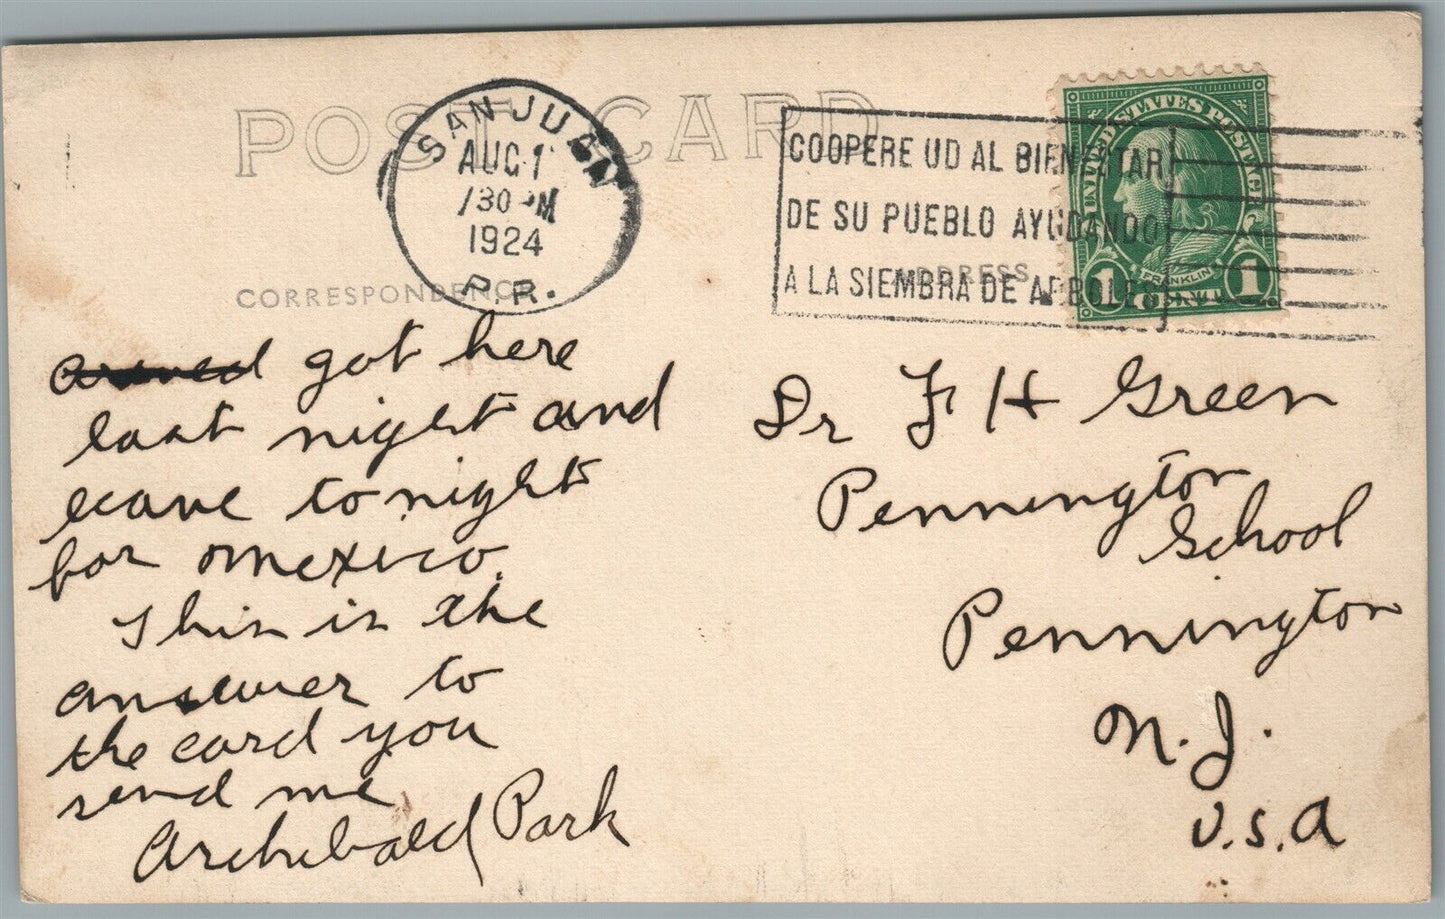 POST CARD
SAN JUAN
AUG 1
730 PM
1924
P.R.
COOPERE UD AL BIENESTAR
DE SU PUEBLO AYUDANDO
A LA SIEMBRA DE ARBOLES
UNITED STATES POSTAGE
FRANKLIN
1 CENT 1
CORRESPONDENCE
ADDRESS
arived got here
last night and
leave tonight
for mexico.
This is the
answer to
the card you
send me
Archibald Park
Dr F H Green
Pennington
School
Pennington
N.J.
U.S.A